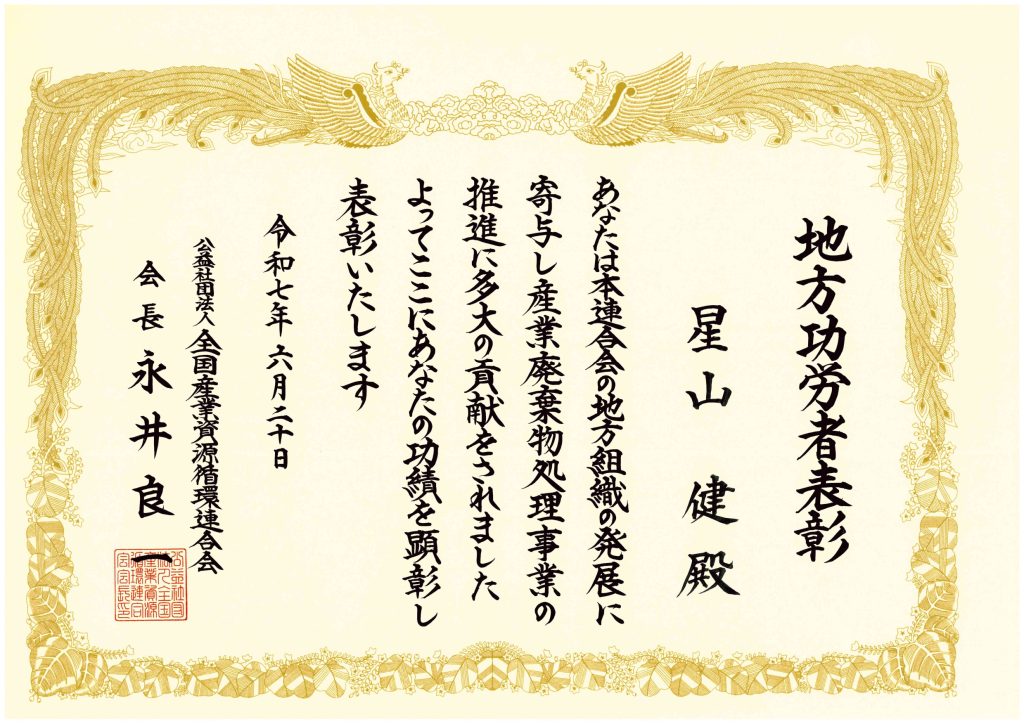 地方功労者表彰
星山 健 殿
あなたは本連合会の地方組織の発展に
寄与し産業廃棄物処理事業の
推進に多大の貢献をされました
よってここにあなたの功績を顕彰し
表彰いたします
令和七年 六月二十日
公益社団法人 全国産業資源循環連合会
会長 永井良一
公益社団
法人全国
産業資源
循環連合
会会長印